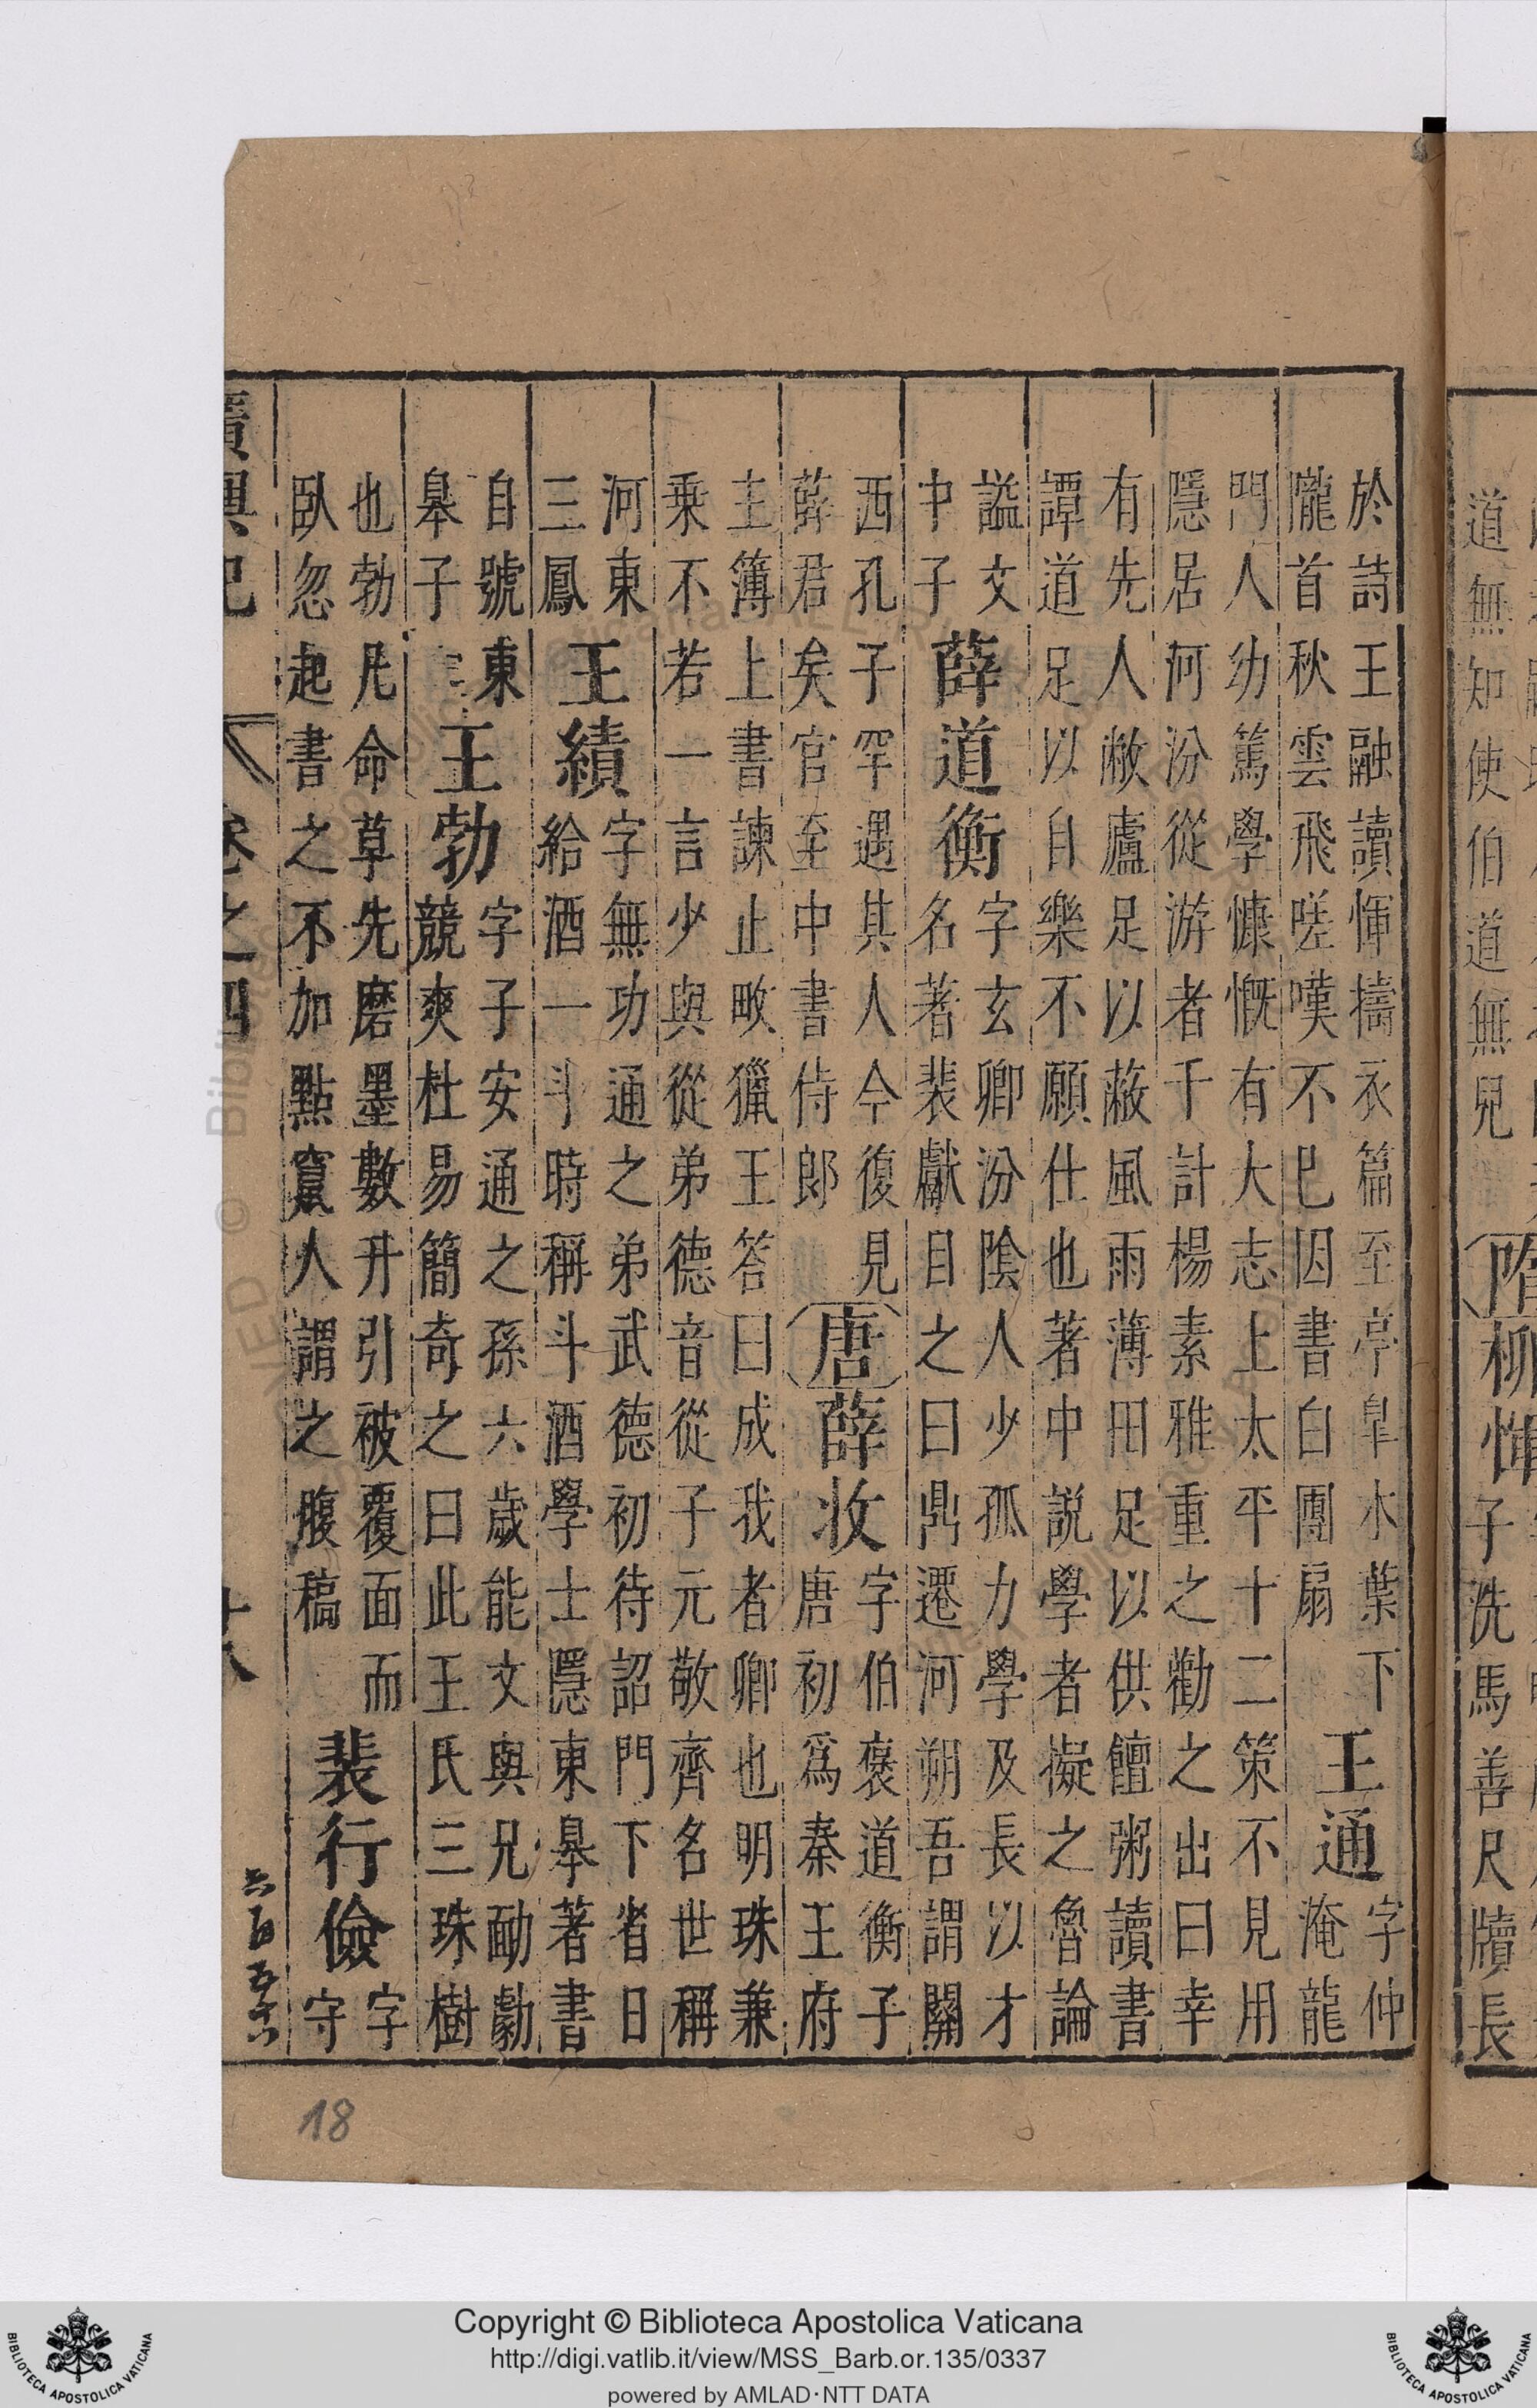 道無知使伯道無兒
隋柳惲
子洗馬善尺牘長
於詩王融讀惲擣衣篇至亭皐木葉下
隴首秋雲飛嗟嘆不已因書白團扇
王通
字仲
淹龍
門人幼篤學慷慨有大志上太平十二策不見用
隱居河汾從游者千計楊素雅重之勸之出曰幸
有先人敝廬足以蔽風雨薄田足以供饘粥讀書
譚道足以自樂不願仕也著中說學者擬之魯論
謚文
中子
薛道衡
字玄卿汾陰人少孤力學及長以才
名著裴獻目之曰鼎遷河朔吾謂關
西孔子罕遇其人今復見
薛君矣官至中書侍郎
唐薛收
字伯褒道衡子
唐初爲秦王府
主簿上書諫止畋獵王答曰成我者卿也明珠兼
乗不若一言少與從弟德音從子元敬齊名世稱
河東
三鳳
王績
字無功通之弟武德初待詔門下省日
給酒一斗時稱斗酒學士隱東臯著書
自號東
臯子
王勃
字子安通之孫六歲能文與兄勔勮
競爽杜易簡奇之曰此王氏三珠樹
也勃凡命草先磨墨數升引被覆面而
臥忽起書之不加點竄人謂之腹稿
裴行儉
字
守
廣輿記 卷之四 十八
18
Copyright © Biblioteca Apostolica Vaticana
http://digi.vatlib.it/view/MSS_Barb.or.135/0337
powered by AMLAD·NTT DATA
BIBLIOTECA APOSTOLICA VATICANA
BIBLIOTECA APOSTOLICA VATICANA